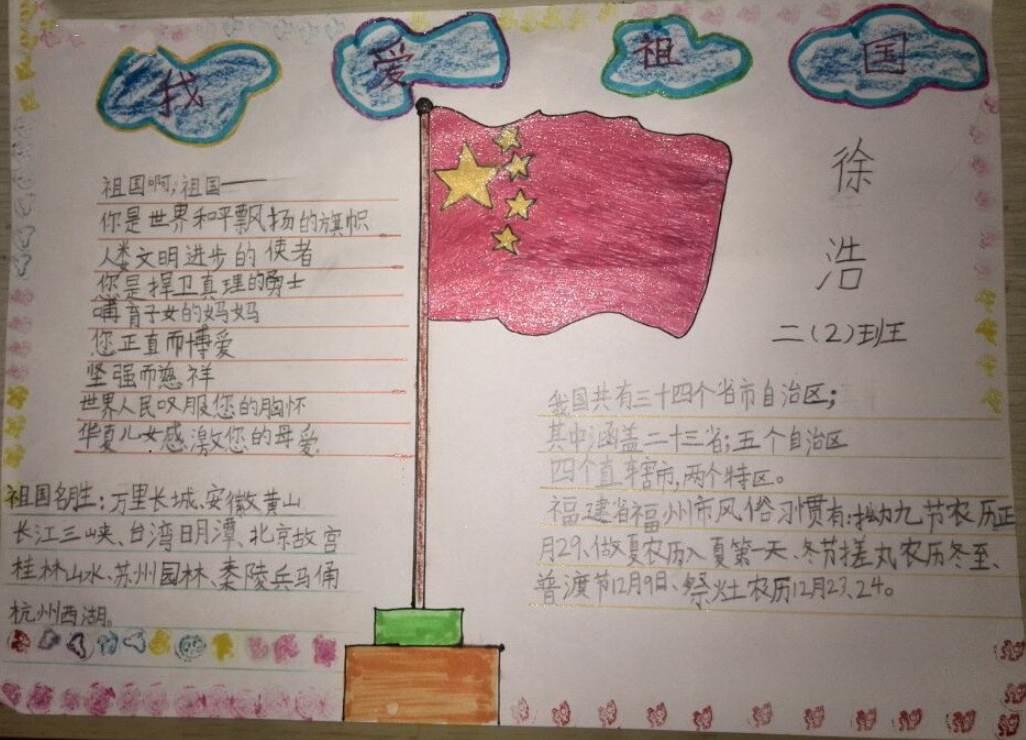 我爱祖国
徐
浩
二(2)班
祖国啊,祖国——
你是世界和平飘扬的旗帜
人类文明进步的使者
您是捍卫真理的勇士
哺育子女的妈妈
您正直而博爱
坚强而慈祥
世界人民叹服您的胸怀
华夏儿女感激您的母爱
祖国名胜:万里长城、安徽黄山
长江三峡、台湾日月潭、北京故宫
桂林山水、苏州园林、秦陵兵马俑
杭州西湖。
我国共有三十四个省市自治区;
其中涵盖二十三省;五个自治区
四个直辖市,两个特区。
福建省福州市风俗习惯有:拗九节农历正
月29、做夏农历入夏第一天、冬节搓丸农历冬至、
普渡节12月9日、祭灶农历12月23、24。